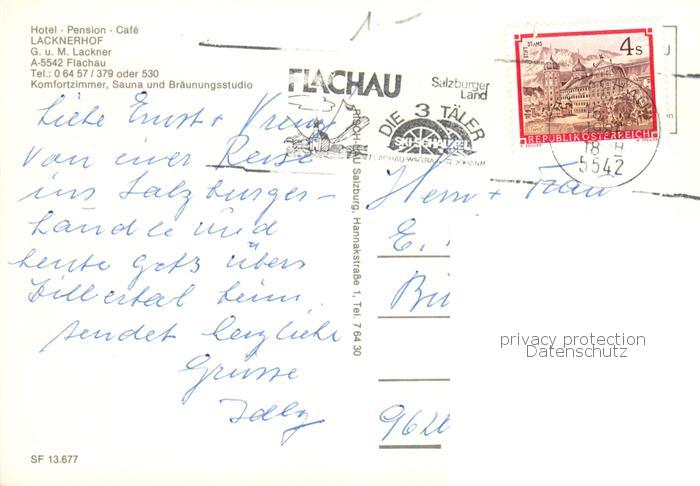 Hotel - Pension - Café
LACKNERHOF
G. u. M. Lackner
A-5542 Flachau
Tel.: 0 64 57 / 379 oder 530
Komfortzimmer, Sauna und Bräunungsstudio
Liebe Ernst + Vreni
Von einer Reise
ins Salzburger-
ländle und
heute gehts übers
Zillertal heim.
sendet herzliche
Grüsse
SF 13.677
FLACHAU
Salzburger
Land
DIE 3 TÄLER
SKISCHAUKEL
FLACHAU-WAGRAIN-ST. JOHANN
STIFT STAMS
4 S
REPUBLIK ÖSTERREICH
18
5542
RISCH-LAU Salzburg, Hannakstraße 1, Tel. 7 64 30
Herrn + Frau
E.
962
privacy protection
Datenschutz